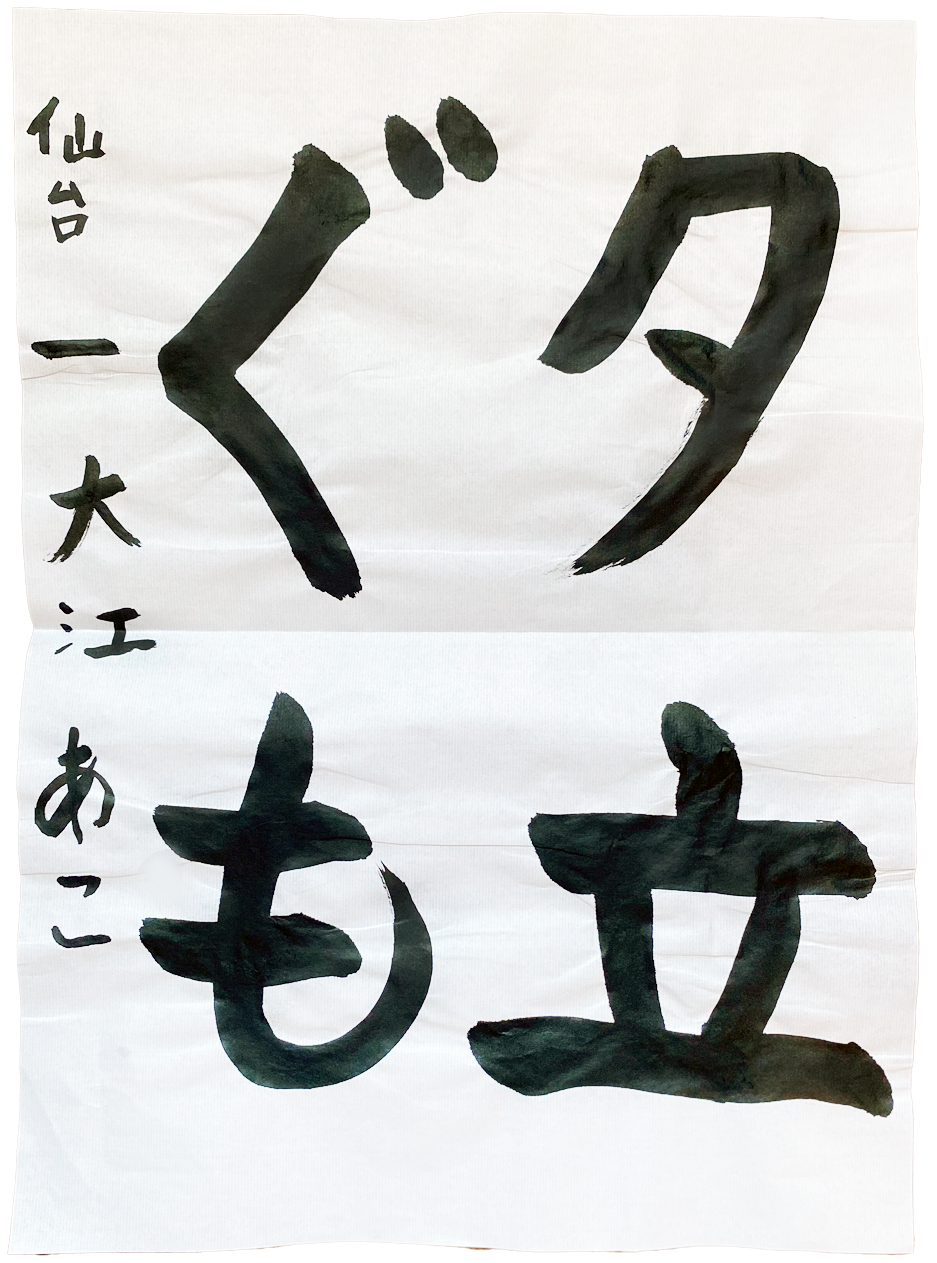 夕立
ぐも
仙台 一 大江 あこ